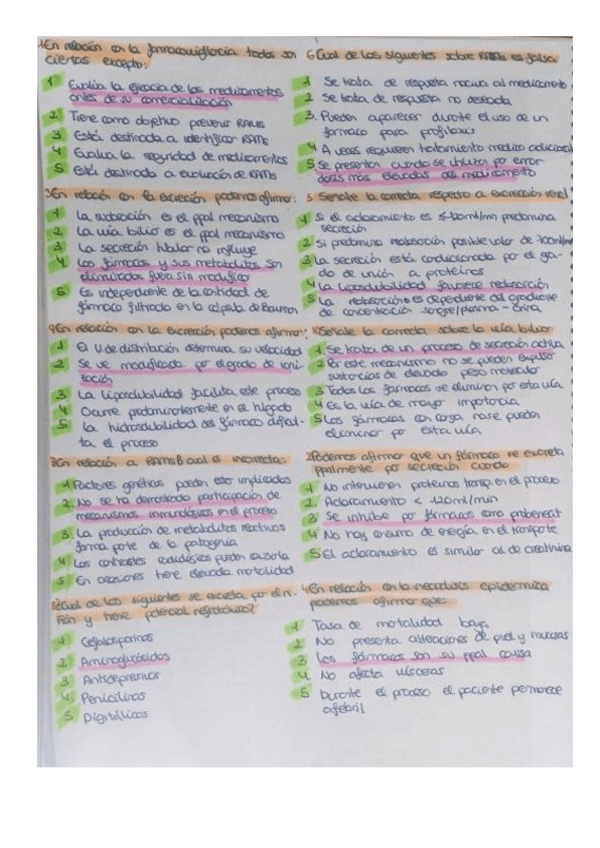 1En relación con la farmacovigilancia todas son
ciertas excepto:
1 Evalúa la eficacia de los medicamentos
antes de su comercialización
2 Tiene como objetivo prevenir RAMs
3 Está destinada a identificar RAMs
4 Evalua la seguridad de medicamentos
5 Está destinada a evaluación de RAMs
3En relación con la excreción podemos afirmar:
1 La sudoración es el ppal mecanismo
2 La vía biliar es el ppal mecanismo
3 La secreción tubular no influye
4 Los fármacos y sus metabolitos son
eliminados fuera sin modificar
5 Es independiente de la cantidad de
fármaco filtrado en la cápsula de Bauman
9En relación con la excreción podemos afirmar:
1 El V. de distribución determina su velocidad
2 Se ve modificada por el grado de ioni-
zación
3 La liposolubilidad facilita este proceso
4 Ocurre predominantemente en el hígado
5 La hidrosolubilidad del fármaco dificul-
ta el proceso
En relación a RAMS B cual es incorrecta:
1 Factores genéticos pueden estar implicados
2. No se ha demostrado participación de
mecanismos inmunológicos en el proceso
3. La producción de metabolitos reactivos
forma parte de la patogenia
4 Los contrastes radiológicos pueden causarla
5 En ocasiones tiene elevada mortalidad
Cual de los siguientes se excreta por el ri-
ñón y tiene potencial nefrotóxico?
1 Cefalosporinas
2 Aminoglucósidos
3 Antidepresivos
4. Penicilinas
5 Digitálicos
6 Cual de las siguientes sobre RAMs es falsa:
1 Se trata de respuesta nociva al medicamento
2 Se trata de respuesta no deseada
3. Pueden aparecer durante el uso de un
fármaco para profilaxis
4 A veces requieren tratamiento medico adicional
5 Se presentan cuando se utilizan por error
dosis más elevadas del medicamento
5 Señale la correcta respecto a excreción renal
1 Si el aclaramiento es ≤ 120ml/mn predomina
secreción
2 Si predomina reabsorción posible valor de 700ml/mn
3 La secreción está condicionada por el gra-
do de unión a proteínas
4 La liposolubilidad favorece reabsorción
5 La reabsorción es dependiente del gradiente
de concentración sangre/plasma - orina
10Señale la correcta sobre la vía biliar
1. Se trata de un proceso de secreción activa
2 Por este mecanismo no se pueden expulsar
sustancias de elevado peso molecular
3 Todos los fármacos se eliminan por esta vía
4 Es la vía de mayor importancia
5 Los fármacos con carga no se pueden
eliminar por esta vía
2Podemos afirmar que un fármaco se excreta
ppalmente por secreción cuando
1 No intervienen proteínas transp. en el proceso
2. Aclaramiento < 120ml/min
3 Se inhibe por fármacos como probenecit
4 No hay consumo de energía en el transporte
5 El aclaramiento es similar al de creatinina
4En relación con la necrolisis epidérmica
podemos afirmar que:
1 Tasa de mortalidad baja
2 No presenta alteraciones de piel y mucosas
3 Los fármacos son su ppal causa
4 No afecta vísceras
5 Durante el proceso el paciente permanece
afebril